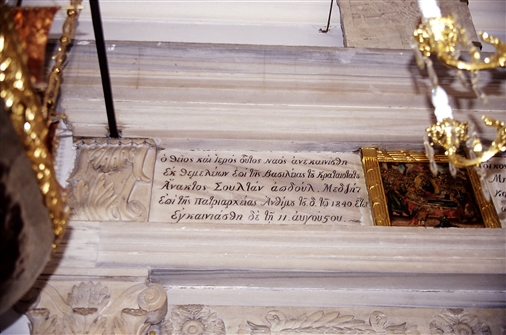 ὁ θεῖος καὶ ἱερὸς οὗτος ναὸς ἀνεκαινίσθη
ἐκ θεμελίων ἐπὶ τῆς βασιλείας τοῦ κραταιοτάτου
Ἄνακτος Σουλτὰν ἀβδούλ. Μεδζὴτ
ἐπὶ τῆς Πατριαρχείας Ἀνθίμου τοῦ δ. τῷ 1840 ἔτει
ἐγκαινιάσθη δὲ τῇ 11 αὐγούσου.